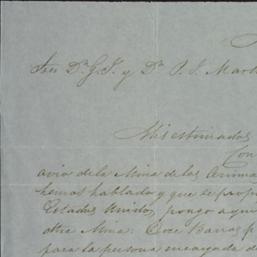 Sres Dn G. F. y Dn P. S. Mart
Mis estimados
Con
avio de la Mina de las Anima
hemos hablado y que se prop
Estados Unidos, pongo aqui
otra Mina. Once Barras p
para la persona encargada d